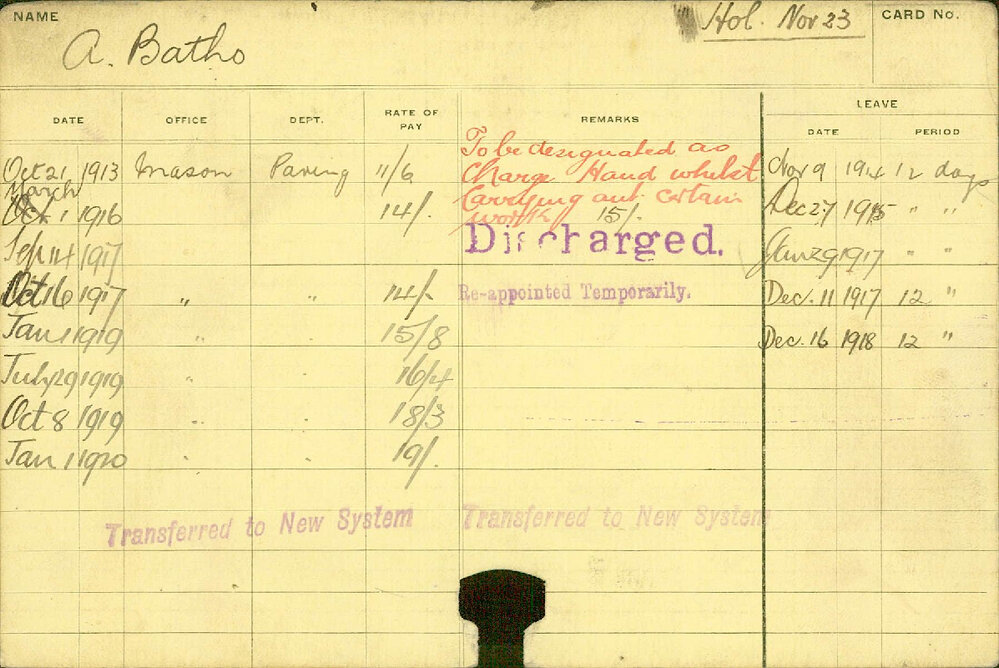 NAME
Hol. Nov 23
CARD No.
A. Batho
DATE OFFICE DEPT. RATE OF PAY REMARKS LEAVE
DATE PERIOD
To be designated as
Oct 21 1913 Mason Paving 11/6 Charge Hand whilst Nov 9 1914 12 days
March
1 1916 14/- Carrying out certain Dec 27 1915 " "
work 15/-
Sep 14 1917 Discharged. Jan 29 1917 " "
Oct 16 1917 " " 14/- Re-appointed Temporarily. Dec. 11 1917 12 "
Jan 1 1919 " " 15/8 Dec. 16 1918 12 "
July 29 1919 " " 16/4
Oct 8 1919 " " 18/3
Jan 1 1920 " " 19/-
Transferred to New System Transferred to New System